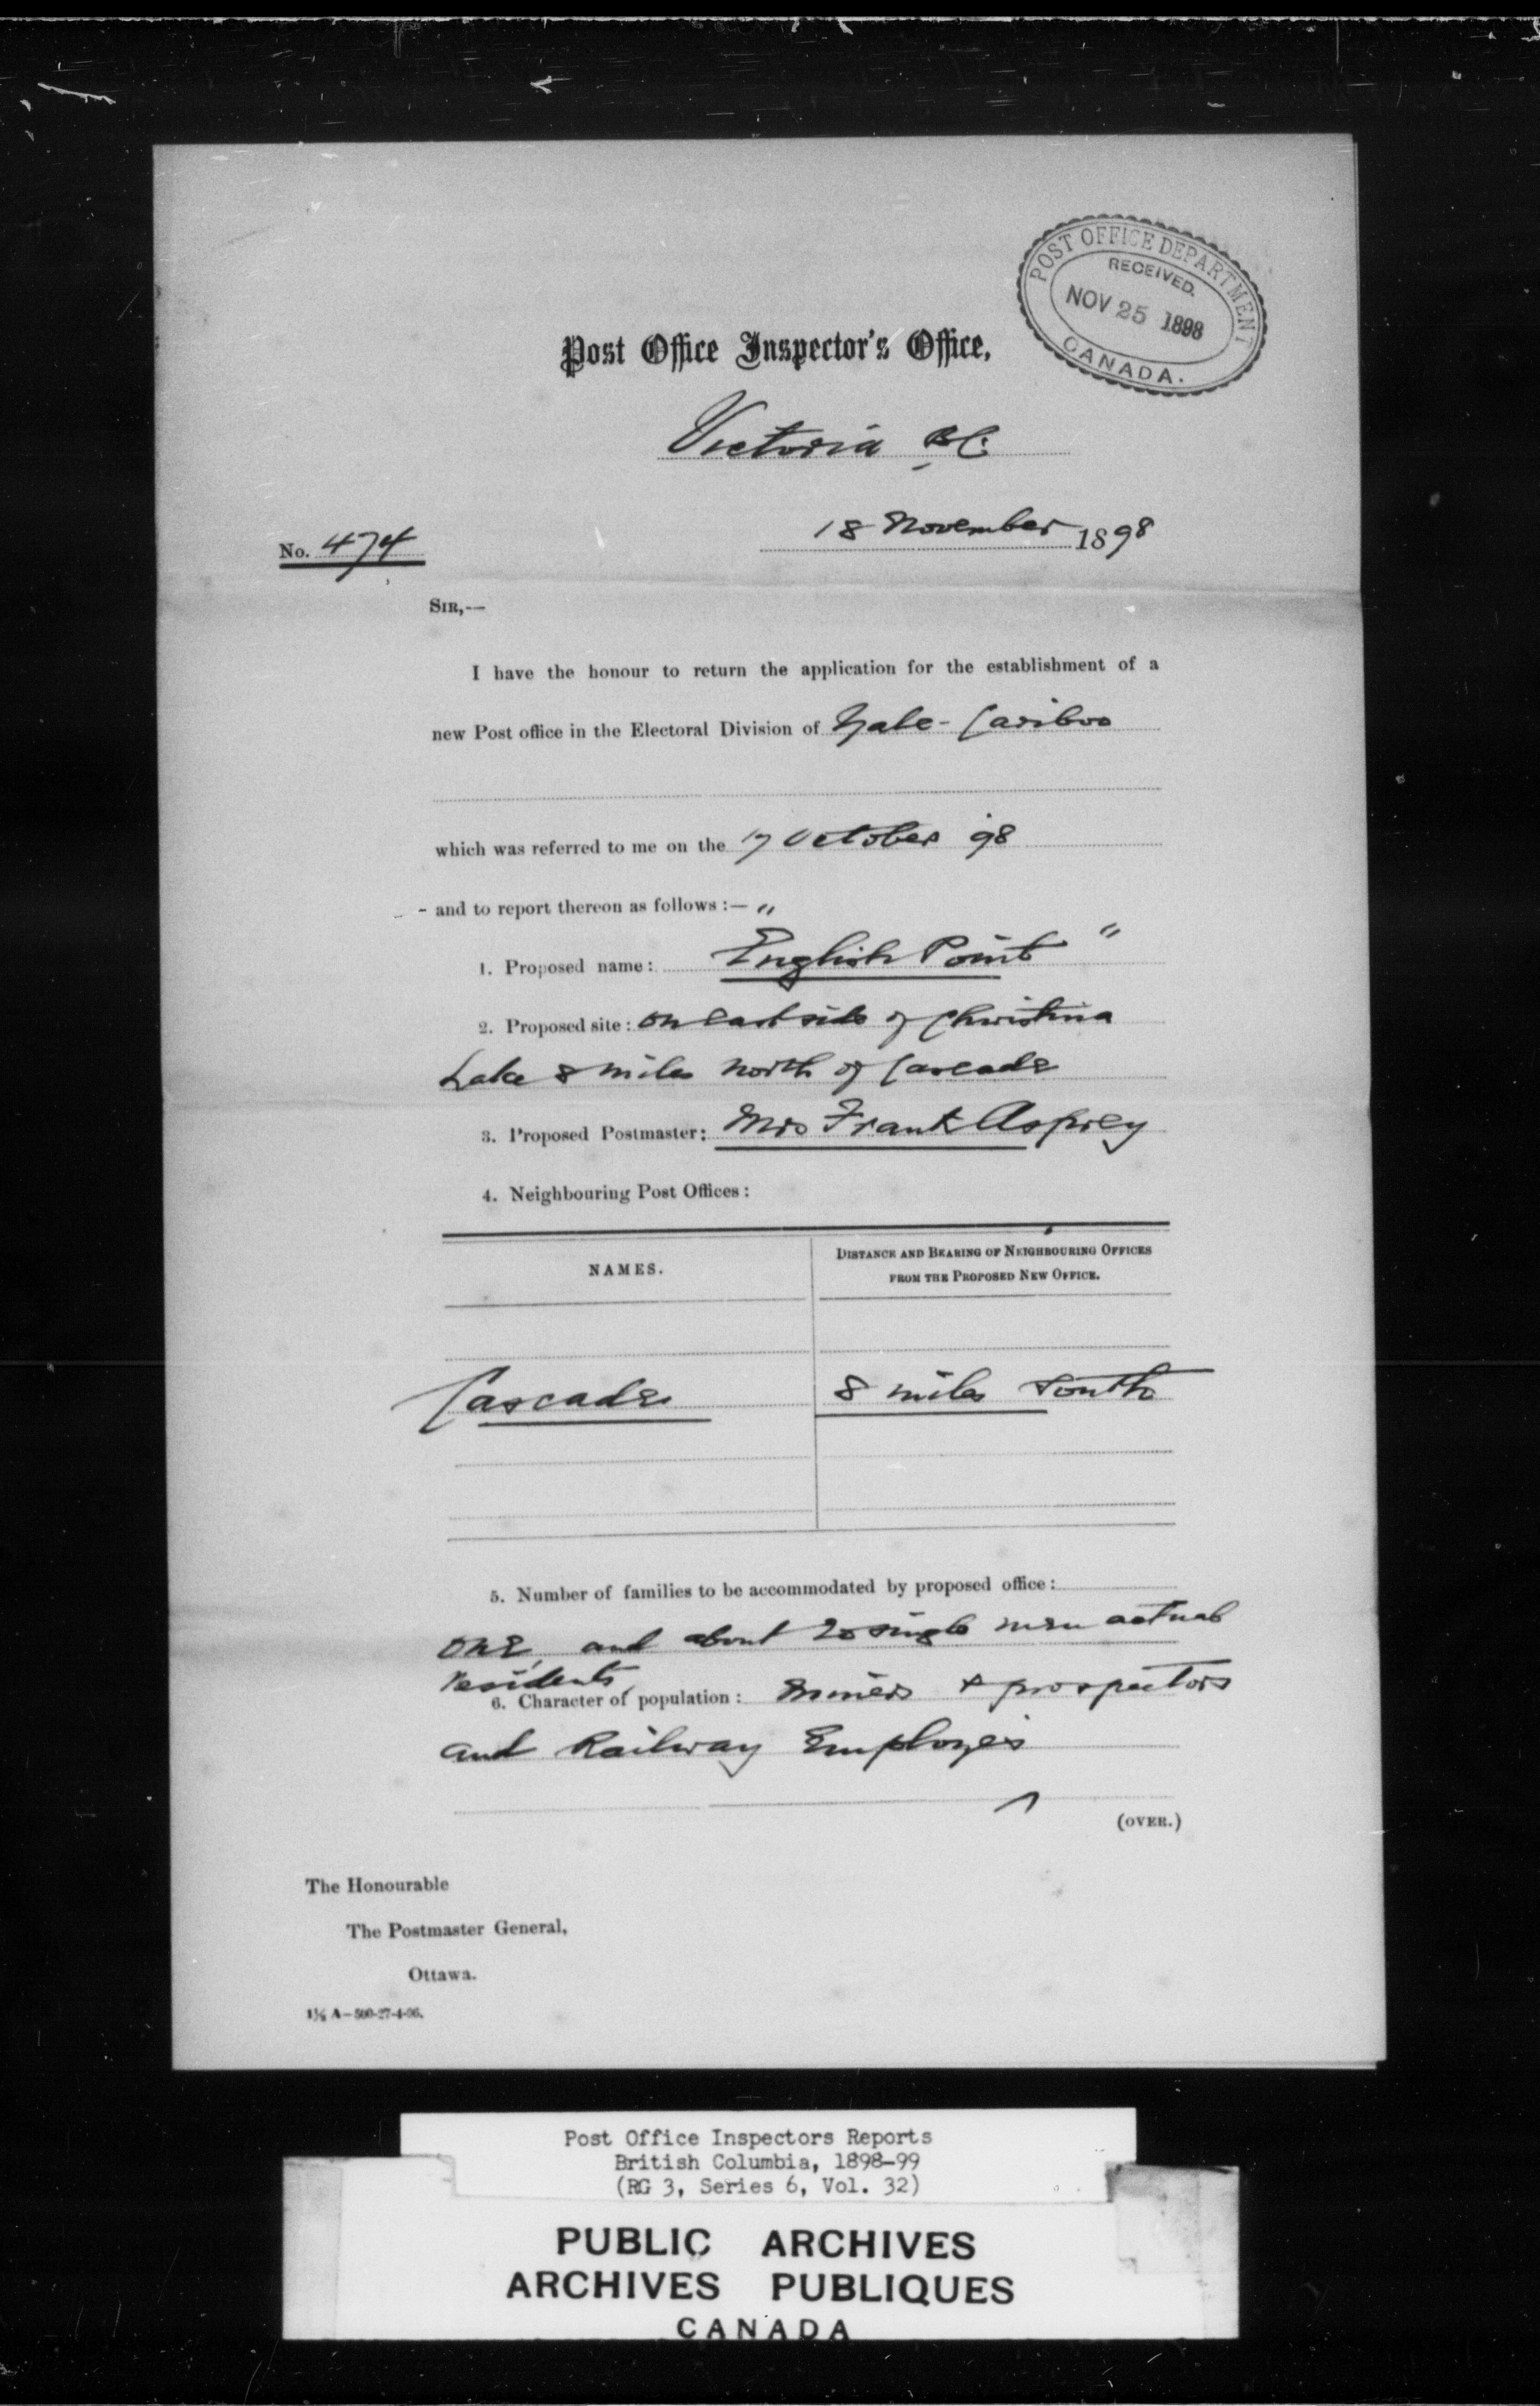 POST OFFICE DEPARTMENT
RECEIVED.
NOV 25 1898
CANADA.
Post Office Inspector's Office,
Victoria BC.
18 November 1898
No. 474
SIR,—
I have the honour to return the application for the establishment of a
new Post office in the Electoral Division of Yale-Cariboo
which was referred to me on the 17 October '98
- and to report thereon as follows :— "
1. Proposed name: English Point "
2. Proposed site: on East side of Christina
Lake 8 miles north of Cascade
3. Proposed Postmaster: Mrs Frank Asprey
4. Neighbouring Post Offices:
NAMES.
DISTANCE AND BEARING OF NEIGHBOURING OFFICES
FROM THE PROPOSED NEW OFFICE.
Cascade 8 miles South
5. Number of families to be accommodated by proposed office:
One, and about 20 single men actual
residents,
6. Character of population: Miners & prospectors
and Railway Employés
(OVER.)
The Honourable
The Postmaster General,
Ottawa.
A—500-27-4-96.
Post Office Inspectors Reports
British Columbia, 1898-99
(RG 3, Series 6, Vol. 32)
PUBLIC ARCHIVES
ARCHIVES PUBLIQUES
CANADA